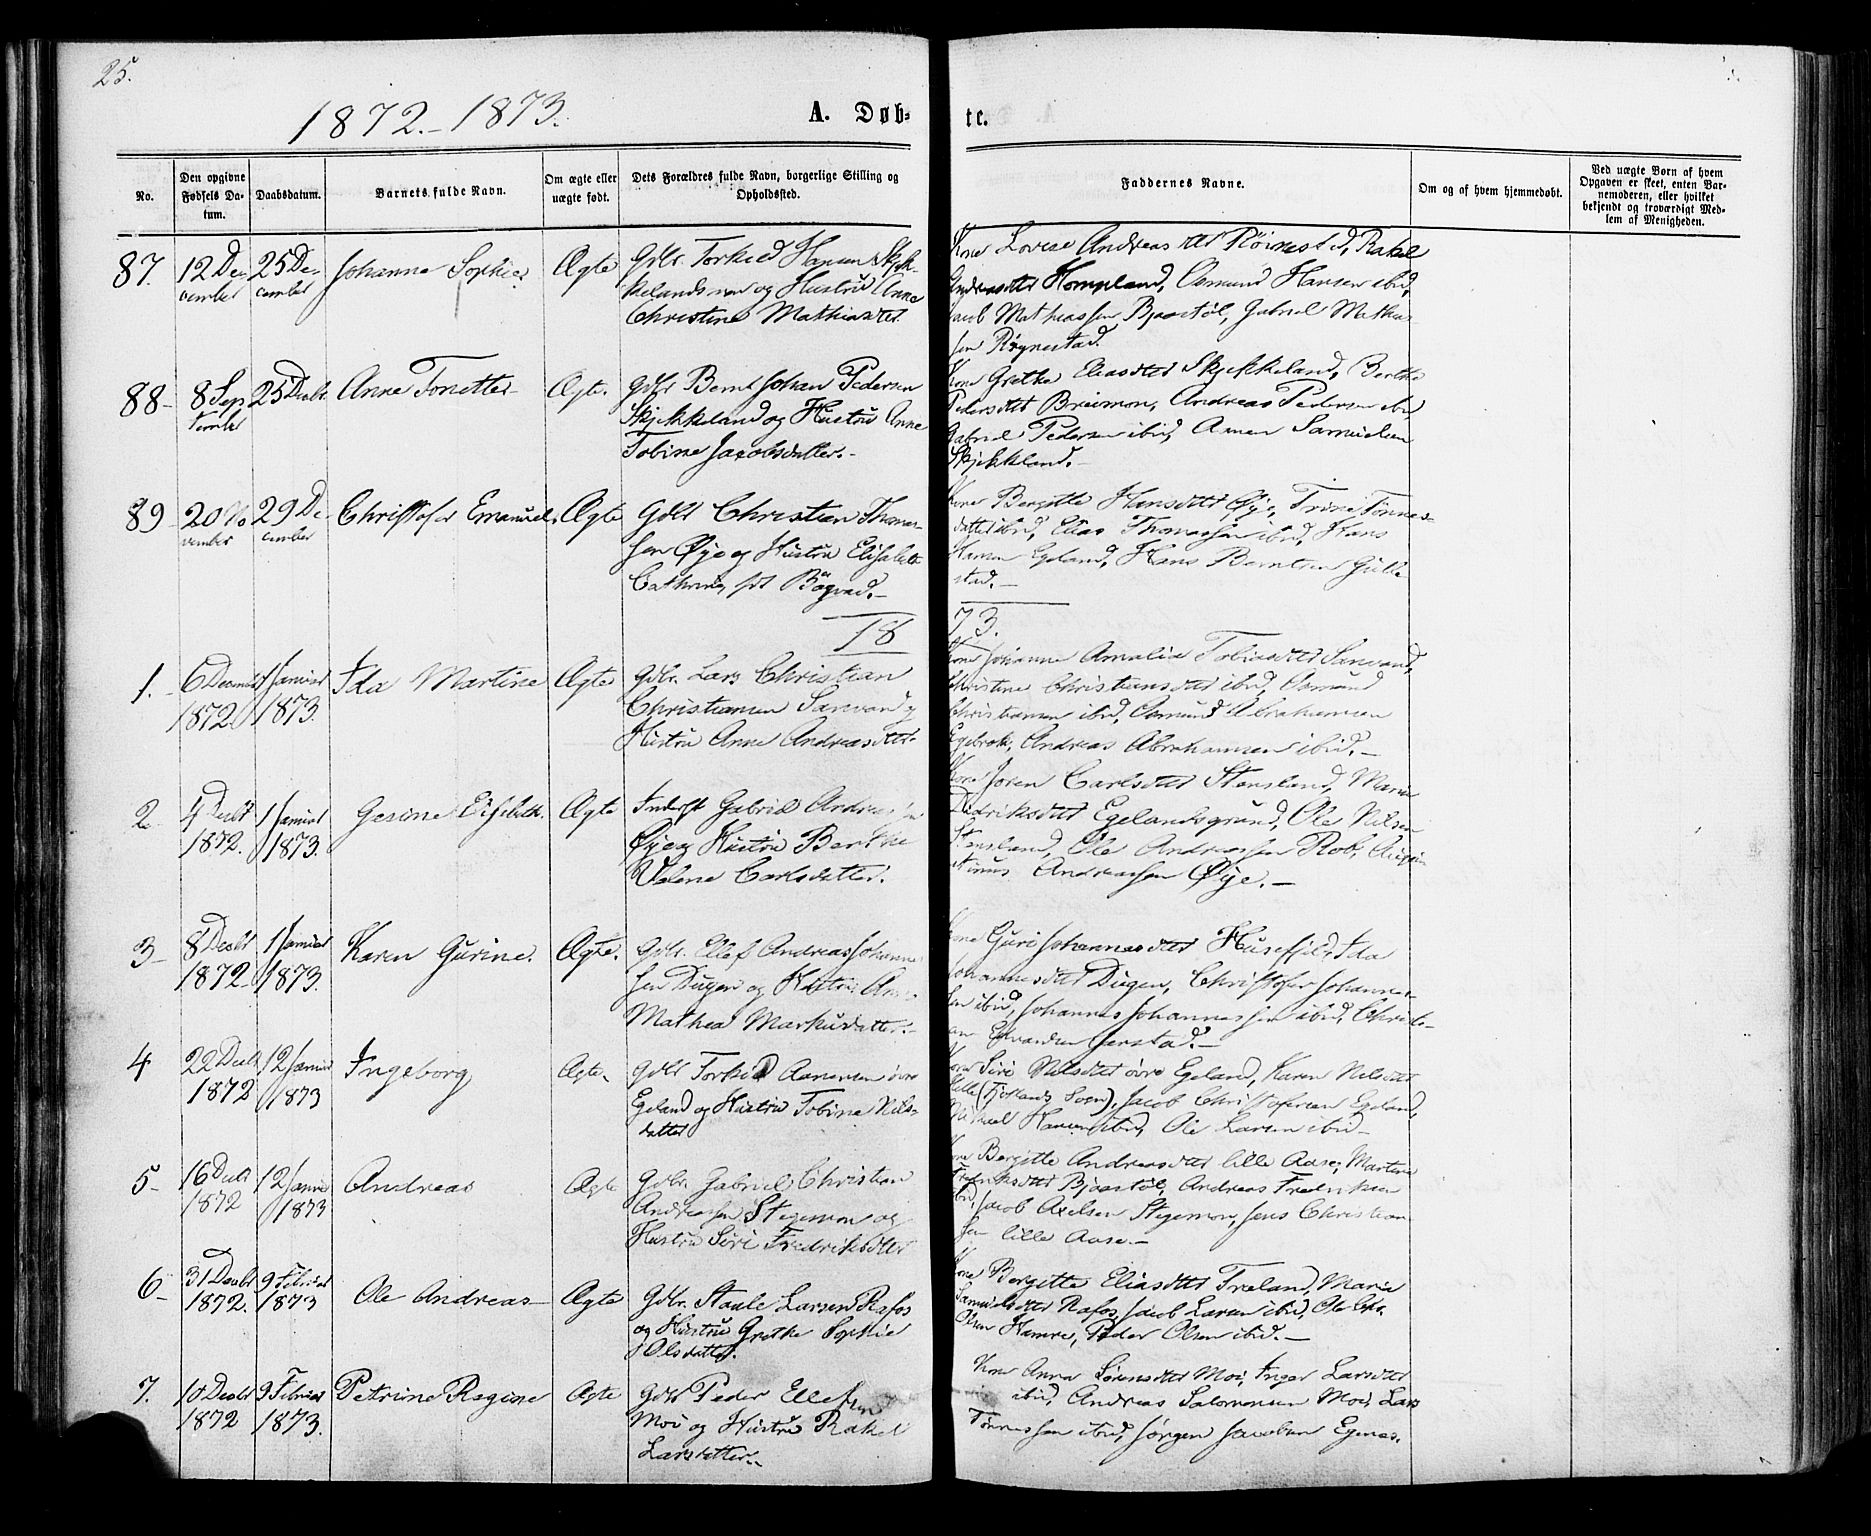 25.
1872.-1873.
A. Døb-
te.
No.
Den opgivne Fødsels Datum.
Daabsdatum.
Barnets fulde Navn.
Om ægte eller uægte født.
Dets Forældres fulde Navn, borgerlige Stilling og Opholdssted.
Faddernes Navne.
Om og af hvem hjemmedøbt.
Ved uægte Børn af hvem Opgaven er skeet, enten Barnemoderen, eller hvilket bekjendt og troværdigt Medlem af Menigheden.
87.
12 De-
cember
25 De-
cember
Johanne Sophie
Ægte
Gdbr. Torkild Hansen Skjek-
kelandsmo og Hustru Anne
Christine Mathiasdtr.
Kone Lovise Andreasdtr Røinestad, Rakel
Andreasdtr Hompland, Osmund Hansen ibid,
Jacob Mathiassen Bjaastøl, Gabriel Mathia-
sen Røynestad.
88-
8 Sep
tember
25 Decbr
Anne Tonette-
Ægte.
Gdbr Bernt Johan Pedersen
Skjekkeland og Hustru Anne
Tobine Jacobsdatter.-
Kone Grethe Eliasdtr Skjekkeland, Berthe
Pedersdtr Breimon, Andreas Pedersen ibid
Gabriel Pedersen ibid, Amen Samuelsen
Skjekkland.-
89-
20 No
vember
29 De
cember
Christofer Emanuel.
Ægte
Gdbr Christian Thomas-
sen Øye og Hustru Elisabeth
Cathrine, fdt Bøgvad.-
Kone Bergitte Hansdtr Øye, Trine Tønnes-
datter ibid, Elias Thomassen ibid, Hans
Hansen Egeland, Hans Berntsen Gulle-
stad.-
18
73.
1.-
6 Decembr
1872.
1 Januar
1873.
Ida Martine
Ægte
Gdbr. Lars Christian
Christiansen Sanvand og
Hustru Anne Andreasdtr.
Kone Johanne Amalia Tobiasdtr Sanvand,
Christine Christiansdtr ibid, Osmund
Christiansen ibid, Osmund Abrahamsen
Egebrok, Andreas Abrahamsen ibid.-
2-
4 Decbr
1872.
1 Januar
1873.
Gesine Elisabeth.
Ægte
Inderst Gabriel Andreassen
Øye og Hustru Berthe
Velene Carlsdatter.
Kone Joren Carlsdtr Stensland, Maren
Didriksdtr Egelandsgrund, Ole Nilsen
Stensland, Ole Andreassen Rob,
Andreassen Øye.-
3-
8 Decbr
1872-
1 Januar
1873.
Karen Gurine.
Ægte.
Gdbr. Ellef Andreas Johannes
sen Dugen og Hustru Anne
Mathea Markusdatter.-
Kone Guri Johannesdtr Husefjeld, Ida
Johannesdtr Dugen, Christofer Johannes-
sen ibid, Johannes Johannessen ibid, Christi-
an Jerstad.-
4
22 Decbr
1872
12 Januar
1873
Ingeborg
Ægte.
Gdbr Torkild Aanensen øvre
Egeland og Hustru Tobine Nils-
datter
Kone Siri Nilsdtr øvre Egeland, Karen Nilsdtr
Lille (Fjotlands Sogn), Jacob Christofersen Egeland,
Mikael Hansen ibid, Ole Larsen ibid-
5-
16 Decbr
1872
12 Januar
1873
Andreas
Ægte
Gdbr. Gabriel Christian
Andreassen Stegemon og
Hustru Siri Fredriksdtr
Kone Bergitte Andreasdtr lille Aase, Martine
Fredriksdtr Bjaastøl, Andreas Fredriksen
ibid, Jacob Axelsen Stegemon, Jens Christian-
sen lille Aase.-
6-
31 Decbr
1872.
9 Februar
1873
Ole Andreas-
Ægte
Gdbr. Staale Larsen Rafos
og Hustru Grethe Sophie
Olsdatter.
Kone Bergitte Eliasdtr Træland, Maria
Samuelsdtr Rafos, Jacob Larsen ibid, Ole Chr.
Olsen Hamre, Peder Olsen ibid.-
7.
10 Decbr
1872
9 Februar
1873.
Petrine Regine
Ægte
Gdbr Peder Ellefsen
Moi og Hustru Rakel
Larsdatter.-
Kone Anna Sørensdtr Moi, Inger Larsdtr
ibid, Andreas Salomonsen Moi, Lars
Tønnessen ibid, Jørgen Jacobsen Egenes.